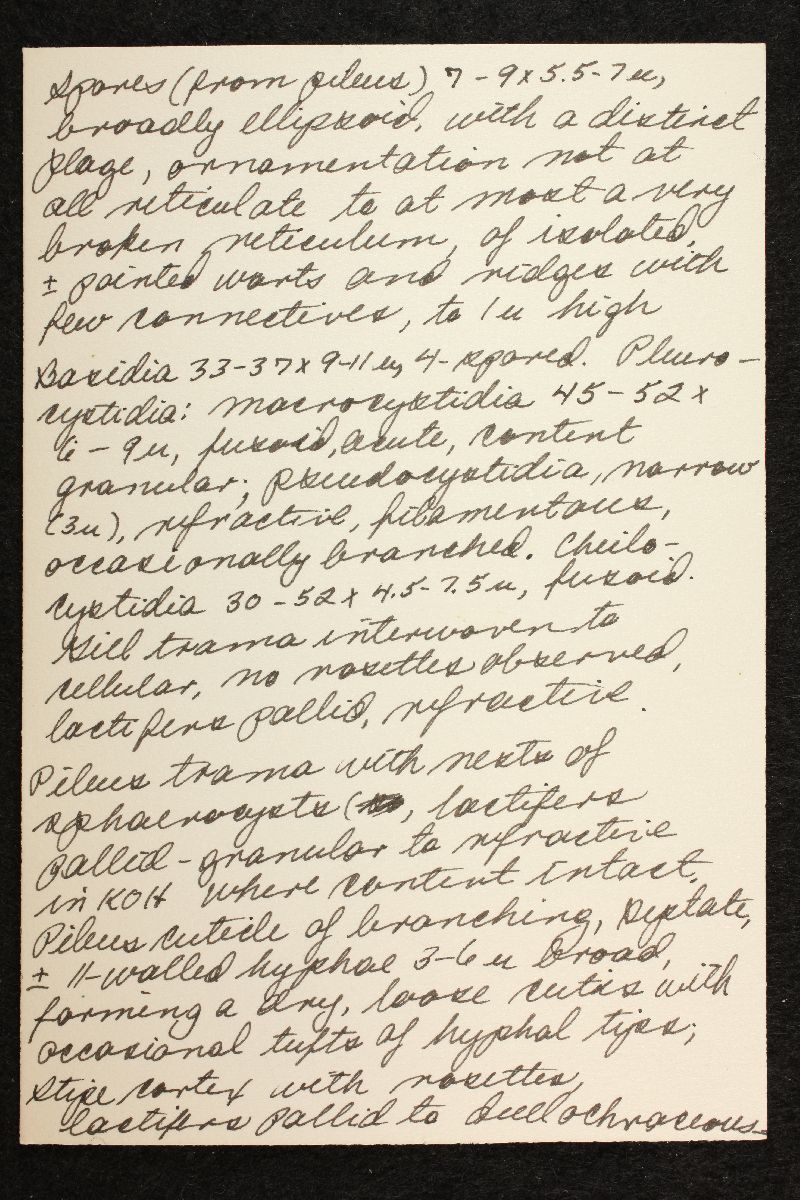 Spores (from pileus) 7-9 x 5.5-7 u,
broadly ellipsoid, with a distinct
plage, ornamentation not at
all reticulate to at most a very
broken reticulum, of isolated,
± pointed warts and ridges with
few connectives, to 1 u high
Basidia 33-37 x 9-11 u, 4-spored. Pleuro-
cystidia: macrocystidia 45-52 x
6-9 u, fusoid, acute, content
granular; pseudocystidia, narrow
(3u), refractive, filamentous,
occasionally branched. Cheilo-
cystidia 30-52 x 4.5-7.5 u, fusoid.
Gill trama interwoven to
cellular, no rosettes observed,
lactifers pallid, refractive.
Pileus trama with nests of
sphaerocysts (, lactifers
pallid-granular to refractive
in KOH where content intact.
Pileus cuticle of branching, septate,
± 11-walled hyphae 3-6 u broad,
forming a dry, loose cutis with
occasional tufts of hyphal tips;
Stipe cortex with rosettes,
lactifers pallid to dull ochraceous-